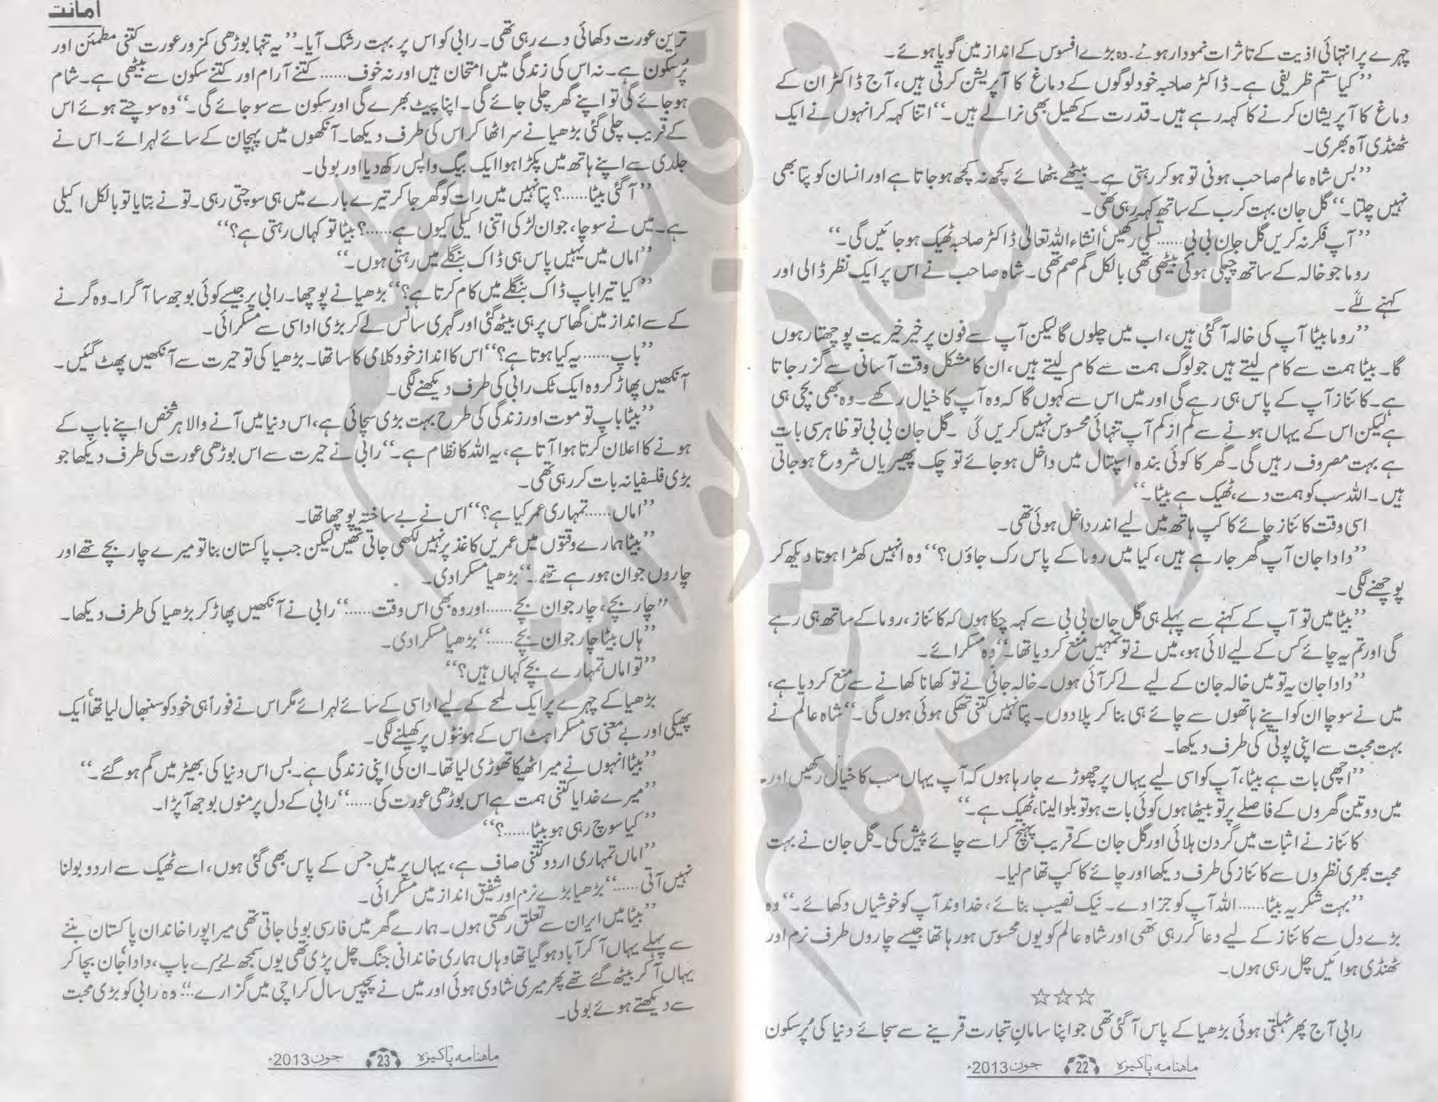 چہرے پر انتہائی اذیت کے تاثرات نمودار ہوئے۔ وہ بڑے افسوس کے انداز میں گویا ہوئے۔
’’کیا ستم ظریفی ہے۔ ڈاکٹر صاحبہ خود لوگوں کے دماغ کا آپریشن کرتی ہیں، آج ڈاکٹر ان کے
دماغ کا آپریشان کرنے کا کہہ رہے ہیں۔ قدرت کے کھیل بھی نرالے ہیں۔‘‘ اتنا کہہ کر انہوں نے ایک
ٹھنڈی آہ بھری۔
’’بس شاہ عالم صاحب ہونی تو ہو کر رہتی ہے۔ بیٹھے بٹھائے کچھ نہ کچھ ہو جاتا ہے اور انسان کو پتا بھی
نہیں چلتا۔‘‘ گل جان بہت کرب کے ساتھ کہہ رہی تھی۔
’’آپ فکر نہ کریں گل جان بی بی...... تسلی رکھیں انشاء اللہ تعالیٰ ڈاکٹر صاحبہ ٹھیک ہو جائیں گی۔‘‘
روما جو خالہ کے ساتھ چپکی ہوئی بیٹھی تھی بالکل گم صم تھی۔ شاہ صاحب نے اس پر ایک نظر ڈالی اور
کہنے لگے۔
’’روما بیٹا آپ کی خالہ آ گئی ہیں، اب میں چلوں گا لیکن آپ سے فون پر خیر خیریت پوچھتا رہوں
گا۔ بیٹا ہمت سے کام لیتے ہیں جو لوگ ہمت سے کام لیتے ہیں، ان کا مشکل وقت آسانی سے گزر جاتا
ہے۔ کائناز آپ کے پاس ہی رہے گی اور میں اس سے کہوں گا کہ وہ آپ کا خیال رکھے۔ وہ بھی بچی ہی
ہے لیکن اس کے یہاں ہونے سے کم از کم آپ تنہائی محسوس نہیں کریں گی۔ گل جان بی بی تو ظاہر سی بات
ہے بہت مصروف رہیں گی۔ گھر کا کوئی بندہ اسپتال میں داخل ہو جائے تو چک پھیریاں شروع ہو جاتی
ہیں۔ اللہ سب کو ہمت دے، ٹھیک ہے بیٹا۔‘‘
اسی وقت کائناز چائے کا کپ ہاتھ میں لیے اندر داخل ہوئی تھی۔
’’دادا جان آپ گھر جا رہے ہیں، کیا میں روما کے پاس رک جاؤں؟‘‘ وہ انہیں کھڑا ہوتا دیکھ کر
پوچھنے لگی۔
’’بیٹا میں تو آپ کے کہنے سے پہلے ہی گل جان بی بی سے کہہ چکا ہوں کہ کائناز، روما کے ساتھ ہی رہے
گی اور تم یہ چائے کس کے لیے لائی ہو، میں نے تو تمہیں منع کر دیا تھا۔‘‘ وہ مسکرائے۔
’’دادا جان یہ تو میں خالہ جان کے لیے لے کر آئی ہوں۔ خالہ جانی نے تو کھانا کھانے سے منع کر دیا ہے،
میں نے سوچا ان کو اپنے ہاتھوں سے چائے ہی بنا کر پلا دوں۔ پتا نہیں کتنی تھکی ہوئی ہوں گی۔‘‘ شاہ عالم نے
بہت محبت سے اپنی پوتی کی طرف دیکھا۔
’’اچھی بات ہے بیٹا، آپ کو اسی لیے یہاں پر چھوڑے جا رہا ہوں کہ آپ یہاں سب کا خیال رکھیں اور
میں دو تین گھروں کے فاصلے پر تو بیٹھا ہوں کوئی بات ہو تو بلوا لینا، ٹھیک ہے۔‘‘
کائناز نے اثبات میں گردن ہلائی اور گل جان کے قریب پہنچ کر اسے چائے پیش کی۔ گل جان نے بہت
محبت بھری نظروں سے کائناز کی طرف دیکھا اور چائے کا کپ تھام لیا۔
’’بہت شکریہ بیٹا...... اللہ آپ کو جزا دے۔ نیک نصیب بنائے، خداوند آپ کو خوشیاں دکھائے۔‘‘ وہ
بڑے دل سے کائناز کے لیے دعا کر رہی تھی اور شاہ عالم کو یوں محسوس ہو رہا تھا جیسے چاروں طرف نرم اور
ٹھنڈی ہوائیں چل رہی ہوں۔
☆☆☆
رابی آج پھر ٹہلتی ہوئی بڑھیا کے پاس آ گئی تھی جو اپنا سامانِ تجارت قرینے سے سجائے دنیا کی پُرسکون
ماہنامہ پاکیزہ 22 جون 2013ء
امانت
ترین عورت دکھائی دے رہی تھی۔ رابی کو اس پر بہت رشک آیا۔ ’’یہ تنہا بوڑھی کمزور عورت کتنی مطمئن اور
پُرسکون ہے۔ نہ اس کی زندگی میں امتحان ہیں اور نہ خوف...... کتنے آرام اور کتنے سکون سے بیٹھی ہے۔ شام
ہو جائے گی تو اپنے گھر چلی جائے گی۔ اپنا پیٹ بھرے گی اور سکون سے سو جائے گی۔‘‘ وہ سوچتے ہوئے اس
کے قریب چلی گئی بڑھیا نے سر اٹھا کر اس کی طرف دیکھا۔ آنکھوں میں پہچان کے سائے لہرائے۔ اس نے
جلدی سے اپنے ہاتھ میں پکڑا ہوا ایک بیگ واپس رکھ دیا اور بولی۔
’’آ گئی بیٹا......؟ پتا نہیں میں رات کو گھر جا کر تیرے بارے میں ہی سوچتی رہی۔ تو نے بتایا تو بالکل اکیلی
ہے۔ میں نے سوچا، جوان لڑکی اتنی اکیلی کیوں ہے......؟ بیٹا تو کہاں رہتی ہے؟‘‘
’’اماں میں یہیں پاس ہی ڈاک بنگلے میں رہتی ہوں۔‘‘
’’کیا تیرا باپ ڈاک بنگلے میں کام کرتا ہے؟‘‘ بڑھیا نے پوچھا۔ رابی پر جیسے کوئی بوجھ سا آ گرا۔ وہ گرنے
کے سے انداز میں گھاس پر ہی بیٹھ گئی اور گہری سانس لے کر بڑی اداسی سے مسکرائی۔
’’باپ...... یہ کیا ہوتا ہے؟‘‘ اس کا انداز خود کلامی کا سا تھا۔ بڑھیا کی تو حیرت سے آنکھیں پھٹ گئیں۔
آنکھیں پھاڑ کر وہ ایک ٹک رابی کی طرف دیکھنے لگی۔
’’بیٹا باپ تو موت اور زندگی کی طرح بہت بڑی سچائی ہے، اس دنیا میں آنے والا ہر شخص اپنے باپ کے
ہونے کا اعلان کرتا ہوا آتا ہے، یہ اللہ کا نظام ہے۔‘‘ رابی نے حیرت سے اس بوڑھی عورت کی طرف دیکھا جو
بڑی فلسفیانہ بات کر رہی تھی۔
’’اماں...... تمہاری عمر کیا ہے؟‘‘ اس نے بے ساختہ پوچھا تھا۔
’’بیٹا ہمارے وقتوں میں عمریں کاغذ پر نہیں لکھی جاتی تھیں لیکن جب پاکستان بنا تو میرے چار بچے تھے اور
چاروں جوان ہو رہے تھے۔‘‘ بڑھیا مسکرا دی۔
’’چار بچے، چار جوان بچے...... اور وہ بھی اس وقت......‘‘ رابی نے آنکھیں پھاڑ کر بڑھیا کی طرف دیکھا۔
’’ہاں بیٹا چار جوان بچے......‘‘ بڑھیا مسکرا دی۔
’’تو اماں تمہارے بچے کہاں ہیں؟‘‘
بڑھیا کے چہرے پر ایک لمحے کے لیے اداسی کے سائے لہرائے مگر اس نے فوراً ہی خود کو سنبھال لیا تھا، ایک
پھیکی اور بے معنی سی مسکراہٹ اس کے ہونٹوں پر کھیلنے لگی۔
’’بیٹا انہوں نے میرا ٹھیکا تھوڑی لیا تھا۔ ان کی اپنی زندگی ہے۔ بس اس دنیا کی بھیڑ میں گم ہو گئے۔‘‘
’’میرے خدایا کتنی ہمت ہے اس بوڑھی عورت کی......‘‘ رابی کے دل پر منوں بوجھ آ پڑا۔
’’کیا سوچ رہی ہو بیٹا......؟‘‘
’’اماں تمہاری اردو کتنی صاف ہے، یہاں پر میں جس کے پاس بھی گئی ہوں، اسے ٹھیک سے اردو بولنا
نہیں آتی......‘‘ بڑھیا بڑے نرم اور شفیق انداز میں مسکرائی۔
’’بیٹا میں ایران سے تعلق رکھتی ہوں۔ ہمارے گھر میں فارسی بولی جاتی تھی میرا پورا خاندان پاکستان بننے
سے پہلے یہاں آ کر آباد ہو گیا تھا وہاں ہماری خاندانی جنگ چل پڑی تھی یوں سمجھ لے میرے باپ، دادا جان بچا کر
یہاں آ کر بیٹھ گئے تھے پھر میری شادی ہوئی اور میں نے پچیس سال کراچی میں گزارے...‘‘ وہ رابی کو بڑی محبت
سے دیکھتے ہوئے بولی۔
ماہنامہ پاکیزہ 23 جون 2013ء